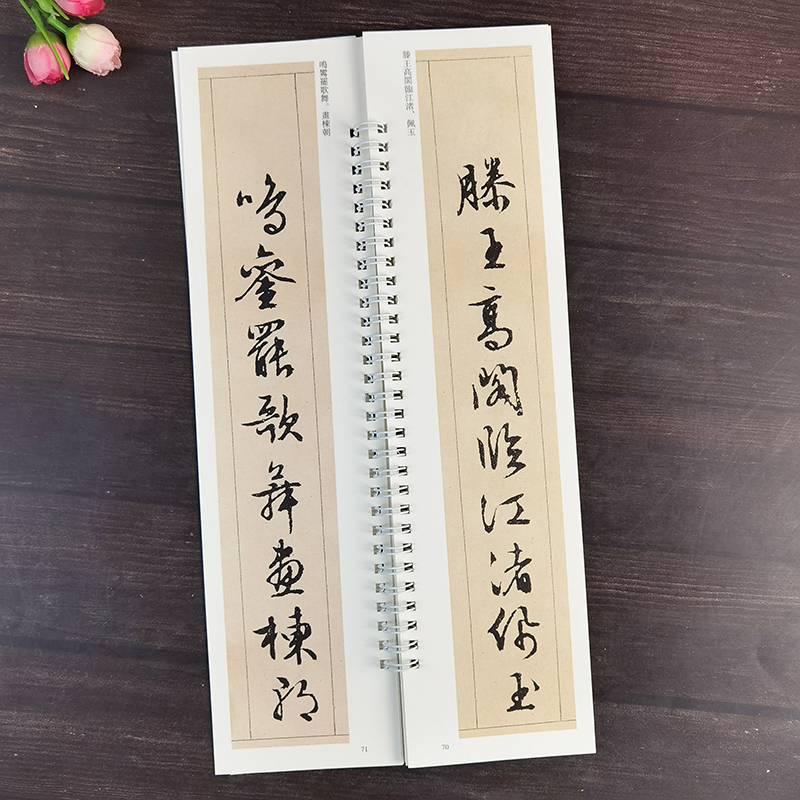 滕王高閣臨江渚，佩玉
滕王高閣臨江渚佩玉
70
鳴鸞罷歌舞。畫棟朝
鳴鸞罷歌舞畫棟朝
71